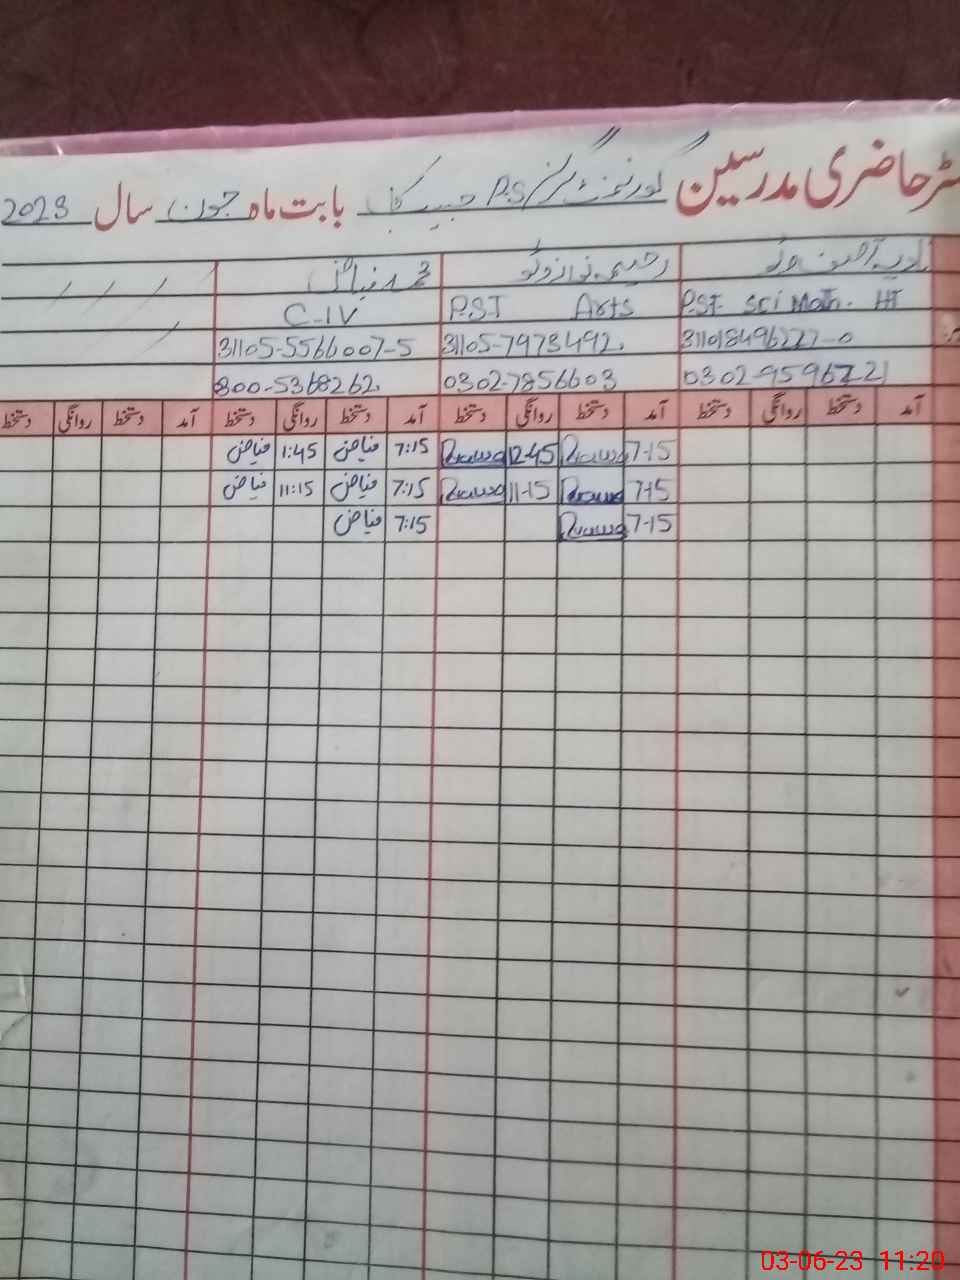 حاضری مدرسین گورنمنٹ گرلز P.S حبیب کا بابت ماہ جون سال 2023
رحیمہ نواز وٹو محمد فیاض
P.S.T Sci Math. HT P.S.T Arts C-IV
311018496227-0 31105-7973492. 31105-5566007-5
0302-7856603 0300-5368262.
آمد دستخط روانگی دستخط آمد دستخط روانگی دستخط آمد دستخط روانگی دستخط آمد دستخط روانگی دستخط
7-15 12-45 7:15 فیاض 1:45 فیاض
7-15 11-15 7:15 فیاض 11:15 فیاض
7-15 7:15 فیاض
03-06-23 11:20